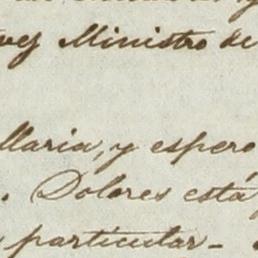 Ministro de
Maria, y espero
. Dolores está
particular –